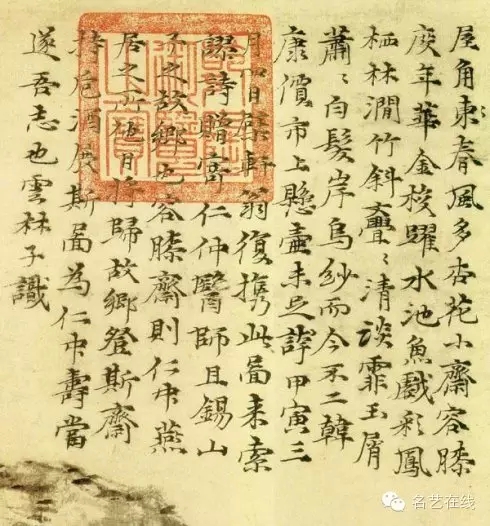 屋角東春風多杏花小齋容膝
度年華金梭躍水池魚戲彩鳳
栖林澗竹斜亹〻清談霏玉屑
蕭〻白髮岸烏紗而今不二韓
康價市上懸壺未足誇甲寅三
月四日檗軒翁復携此圖来索
謬詩贈寄仁仲醫師且錫山
予之故鄉也容膝齋則仁中燕
居之所他日將歸故鄉登斯齋
持巵酒展斯圖為仁中壽當
遂吾志也雲林子識
名艺在线